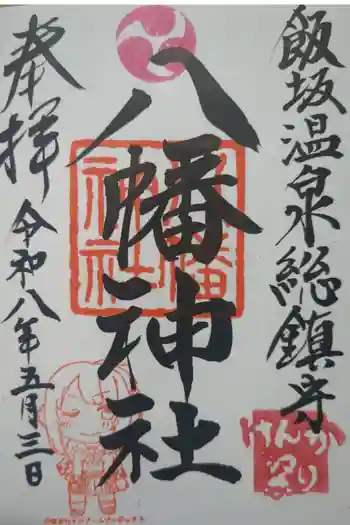 飯坂温泉総鎮守
八幡神社
八幡神社
奉拝
令和八年五月三日
けんか祭り